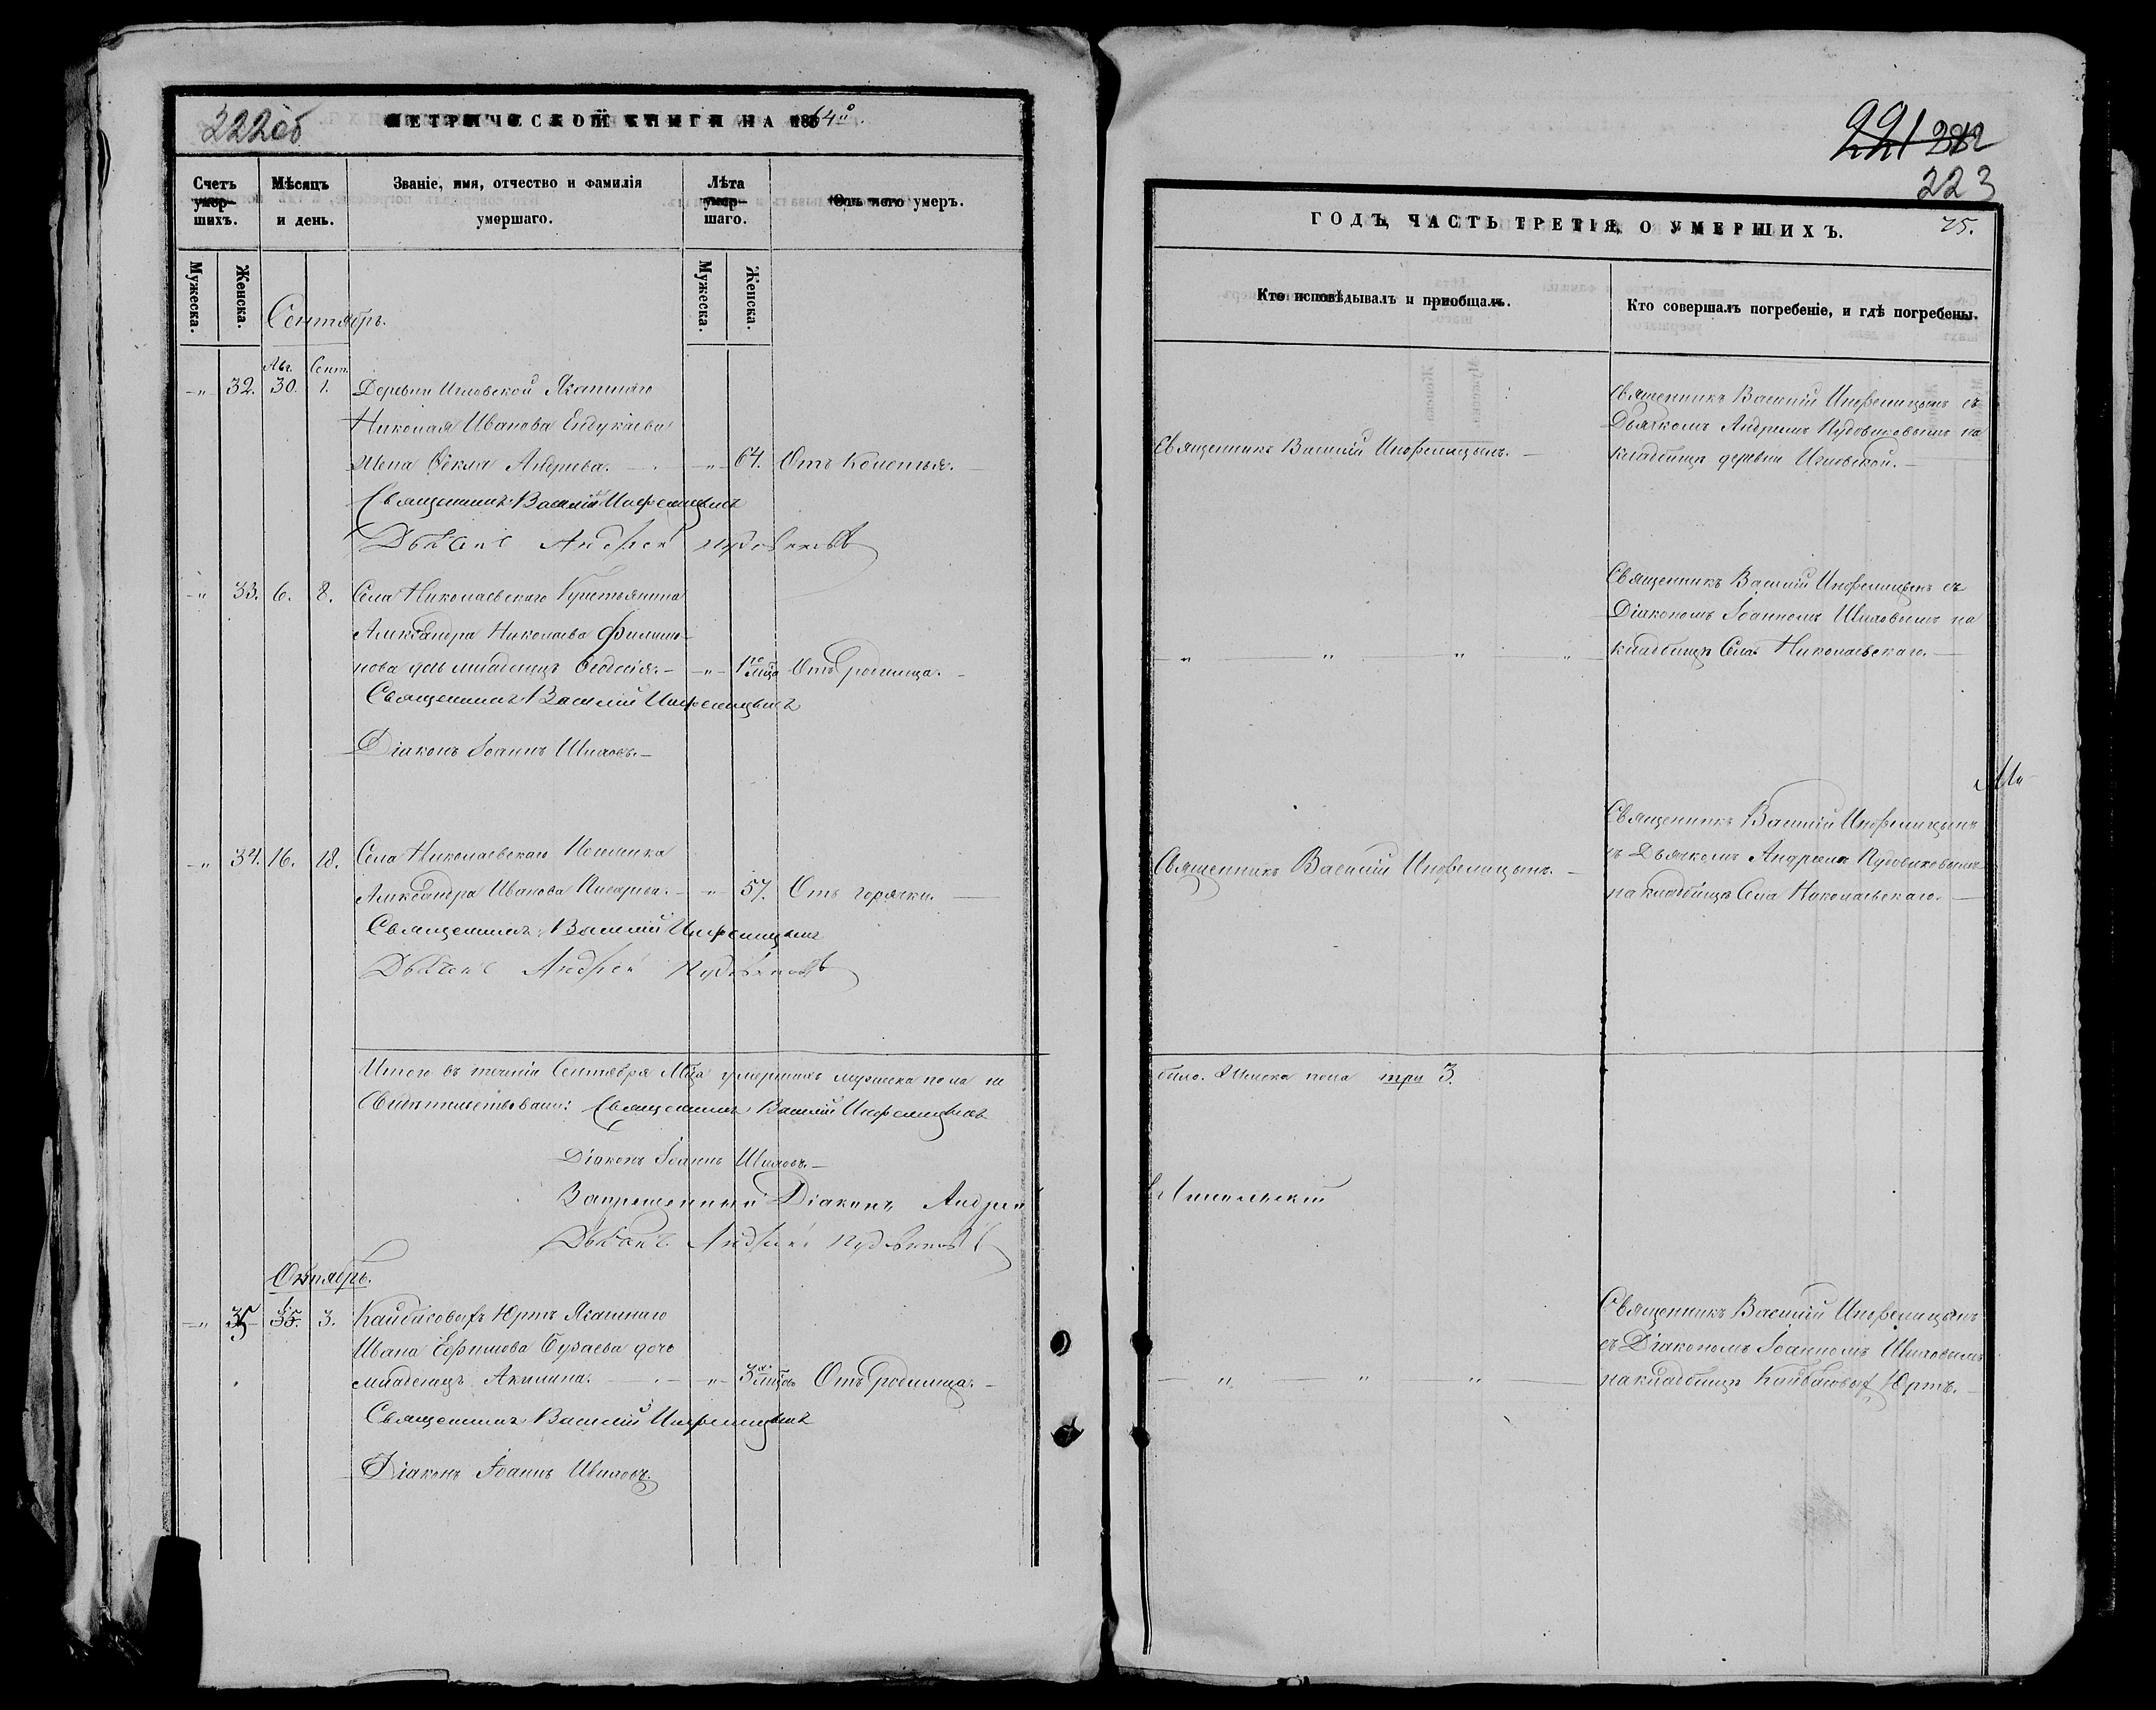 222об
МЕТРИЧЕСКОЙ КНИГИ НА 1864й
Счетъ умер-шихъ.
Мѣсяцъ и день.
Званіе, имя, отчество и фамилія умершаго.
Лѣта умер-шаго.
Отъ чего умеръ.
Мужеска.
Женска.
Мужеска.
Женска.
Сентябрь.
Авг. Сент.
-"- 32. 30. 1. Деревни Игловской Ясашнаго
Николая Иванова
жена Ѳекла Андреева. -"- 64. Отъ колотья.
Священникъ Василій Инфелицынъ
Дьячекъ Андрей Пудовиковъ
-"- 33. 6. 8. Села Николаевскаго Крестьянина
Александра Николаева Филипо-
нова дочь младенецъ Ѳеодосія. -"- 1го мца Отъ родимца.
Священникъ Василій Инфелицынъ
Діаконъ Іоаннъ Шиловъ.
-"- 34. 16. 18. Села Николаевскаго Поселенка
Александра Иванова Писарева. -"- 57. Отъ горячки.
Священникъ Василій Инфелицынъ
Дьячекъ Андрей Пудовиковъ
Итого въ теченіи Сентября Мца умершихъ мужеска пола не
Свидѣтельствовали: Священникъ Василій Инфелицынъ
Діаконъ Іоаннъ Шиловъ.
Запрещенный Діаконъ Андрей
Дьячекъ Андрей Пудовиковъ
Октябрь.
-"- 35 1. 3. Кайбаловыхъ Юртъ Ясашнаго
Ивана Ефимова Бураева дочь
младенецъ Акилина. -"- 3хъ мцовъ Отъ родимца.
Священникъ Василій Инфелицынъ
Діаконъ Іоаннъ Шиловъ.
221
223
ГОДЪ, ЧАСТЬ ТРЕТІЯ, О УМЕРШИХЪ.
75.
Кто исповѣдывалъ и пріобщалъ.
Кто совершалъ погребеніе, и гдѣ погребены.
Священникъ Василій Инфелицынъ.
Священникъ Василій Инфелицынъ съ
Дьячкомъ Андреемъ Пудовиковымъ на
кладбищѣ деревни Игловской.
" " " "
Священникъ Василій Инфелицынъ съ
Діакономъ Іоанномъ Шиловымъ на
кладбищѣ Села Николаевскаго.
Священникъ Василій Инфелицынъ.
Священникъ Василій Инфелицынъ
съ Дьячкомъ Андреемъ Пудовиковымъ
на кладбищѣ Села Николаевскаго.
было. Женска пола три 3.
" " "
Священникъ Василій Инфелицынъ
съ Діакономъ Іоанномъ Шиловымъ
на кладбищѣ Кайбаловыхъ Юртъ.